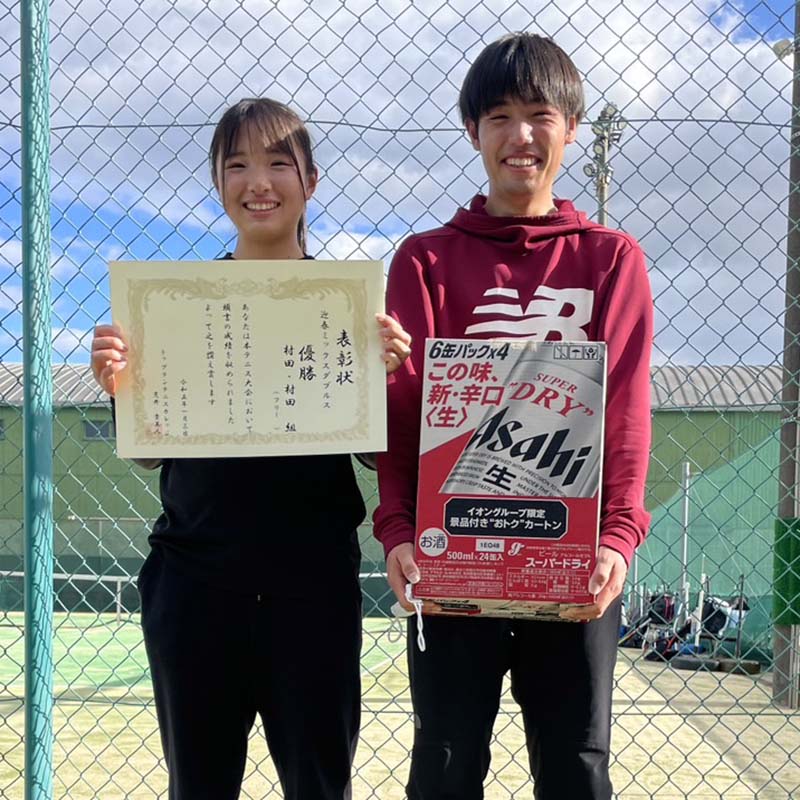 表彰状
迎春ミックスダブルス
優勝
村田・村田 組
(フリー )
あなたは本テニス大会において
頭書の成績を収められました
よって之を讃え賞します
令和五年一月三日
トップランテニスカレッジ
NB
6缶パック×4
この味、
新・辛口
〈生〉
SUPER
"DRY"
Asahi
生
イオングループ限定
景品付き"おトク"カートン
お酒
1EQ48
500ml×24缶入
ビール
スーパードライ